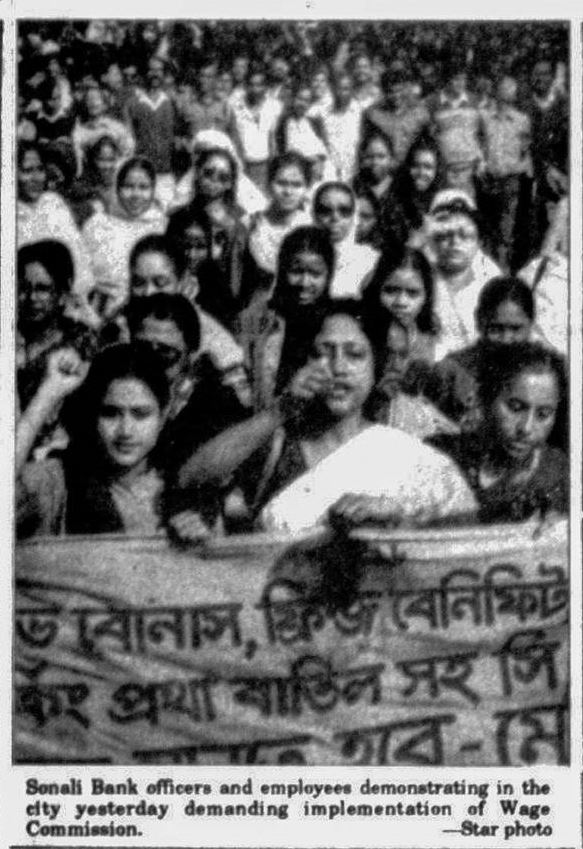 ভ বোনাস, ফ্রিজ বেনিফিট
কিং প্রথা বাতিল সহ সি
হবে - মে
Sonali Bank officers and employees demonstrating in the
city yesterday demanding implementation of Wage
Commission. —Star photo